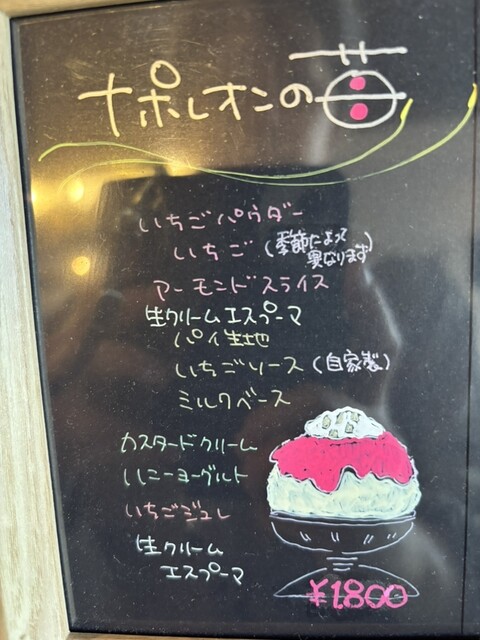 ナポレオンの苺
いちごパウダー
いちご(季節によって
異なります)
アーモンドスライス
生クリームエスプーマ
パイ生地
いちごソース(自家製)
ミルクベース
カスタードクリーム
ハニーヨーグルト
いちごジュレ
生クリーム
エスプーマ
¥1800